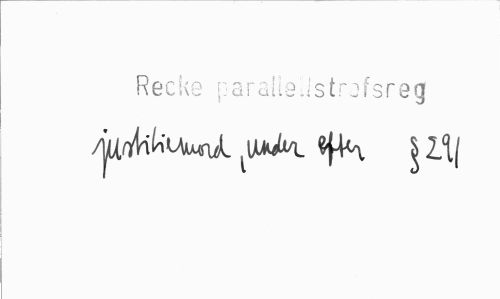 Recke parallellstrafsreg
justitiemord, under efter § 291